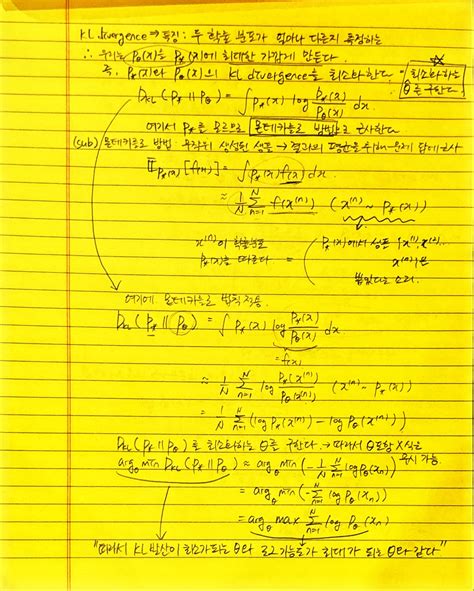 KL divergence ⇒ 특징 : 두 확률 분포가 얼마나 다른지 측정하는
∴ 우리는 Pθ(x)를 P*(x)에 최대한 가깝게 만든다.
즉, P*(x)와 Pθ(x)의 KL divergence를 최소화한다 = 최소화하는 θ를 구한다.
D_KL(P* ∥ Pθ) = ∫ P*(x) log P*(x)/Pθ(x) dx.
여기서 P*를 모르므로 몬테카를로 방법으로 근사한다
(sub) 몬테카를로 방법 : 무작위 생성된 샘플 → 결과의 평균을 취해 문제 답에 근사
E_P*(x)[f(x)] = ∫ P*(x) f(x) dx.
≈ 1/N Σ_{n=1}^{N} f(x⁽ⁿ⁾) (x⁽ⁿ⁾ ~ P*(x))
x⁽ⁿ⁾이 확률분포 P*(x)를 따른다 = P*(x)에서 샘플 {x⁽¹⁾, x⁽²⁾...
x⁽ⁿ⁾}을
뽑았다는 소리.
여기에 몬테카를로 법칙 적용.
D_KL(P* ∥ Pθ) = ∫ P*(x) log P*(x)/Pθ(x) dx
= f(x)
≈ 1/N Σ_{n=1}^{N} log P*(x⁽ⁿ⁾)/Pθ(x⁽ⁿ⁾) (x⁽ⁿ⁾ ~ P*(x))
= 1/N Σ_{n=1}^{N} (log P*(x⁽ⁿ⁾) - log Pθ(x⁽ⁿ⁾)
D_KL(P* ∥ Pθ)를 최소화하는 θ를 구한다. → 따라서 θ포함 X식은 무시 가능.
argθ min D_KL(P* ∥ Pθ) ≈ argθ min (-1/N Σ_{n=1}^{N} log Pθ(xn))
= argθ min (-Σ_{n=1}^{N} log Pθ(xn))
= argθ max Σ_{n=1}^{N} log Pθ(xn)
"따라서 KL발산이 최소가 되는 θ와 로그 가능도가 최대가 되는 θ와 같다"